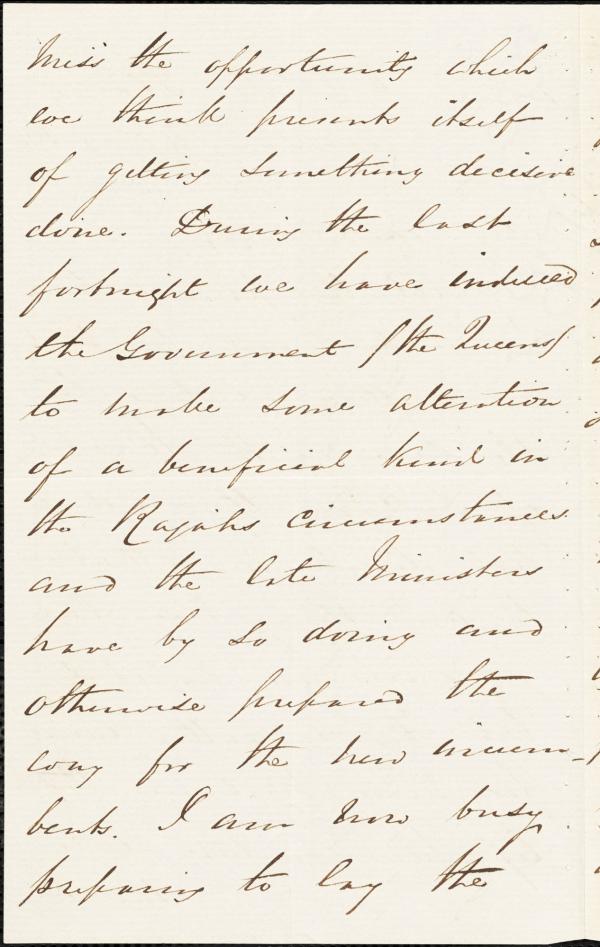 miss the opportunity which
we think presents itself
of getting something decisive
done. During the last
fortnight we have induced
the Government /the Queens/
to make some alteration
of a beneficial kind in
the Rajahs circumstances
and the late Ministers
have by so doing and
otherwise prepared the
way for the new incum-
bents. I am now busy
preparing to lay the